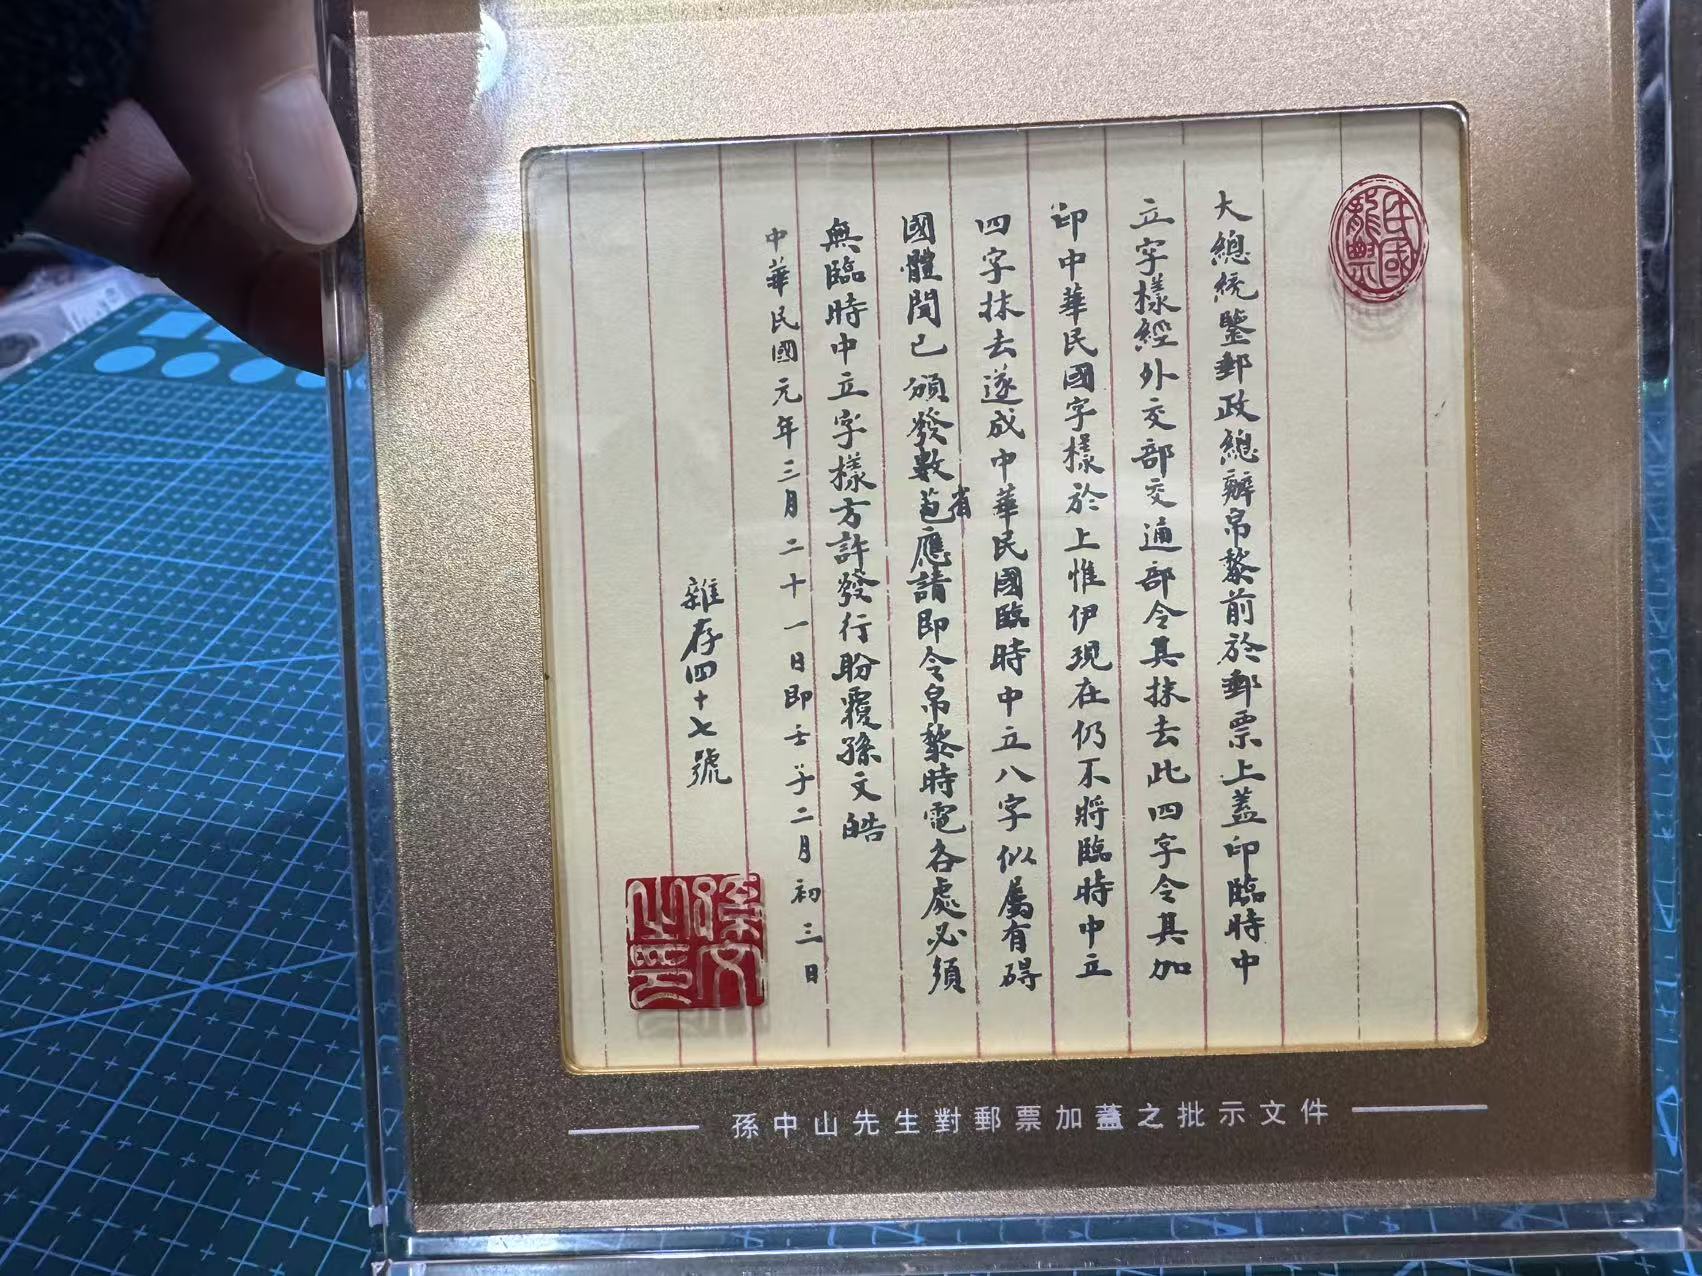 民國
龍票
大總統鑒郵政總辦帛黎前於郵票上蓋印臨時中
立字樣經外交部交通部令其抹去此四字令其加
印中華民國字樣於上惟伊現在仍不將臨時中立
四字抹去遂成中華民國臨時中立八字似屬有碍
國體聞已頒發數省應請即令帛黎時電各處必須
無臨時中立字樣方許發行盼覆孫文皓
中華民國元年三月二十一日即壬子二月初三日
雜存四十七號
孫文
之印
孫中山先生對郵票加蓋之批示文件